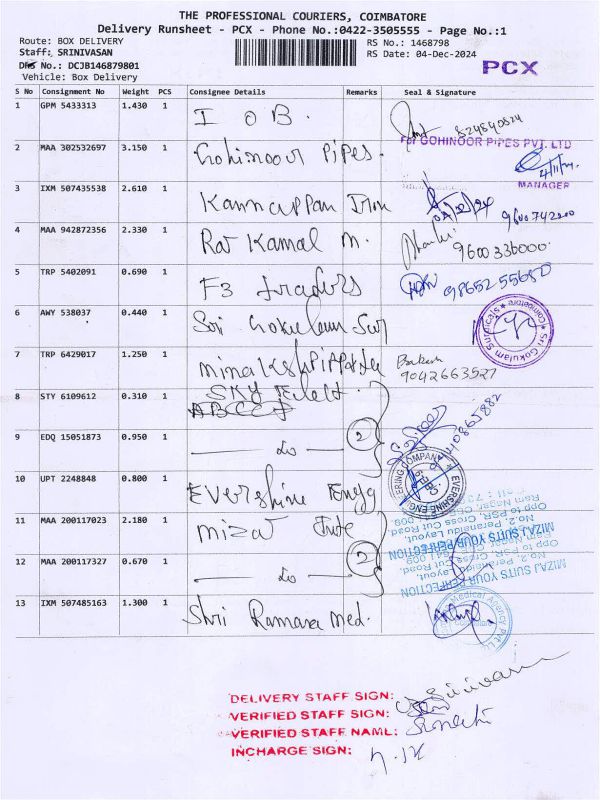 THE PROFESSIONAL COURIERS, COIMBATORE
Delivery Runsheet - PCX - Phone No.:0422-3505555 - Page No.:1
Route: BOX DELIVERY
RS No.: 1468798
Staff: SRINIVASAN
RS Date: 04-Dec-2024
DRS No.: DCJB146879801
PCX
Vehicle: Box Delivery
S No Consignment No Weight PCS Consignee Details Remarks Seal & Signature
1 GPM 5433313 1.430 1 I O B.
For GOHINOOR PIPES PVT. LTD
2 MAA 302532697 3.150 1 Gohinoor Pipes.
MANAGER
3 IXM 507435538 2.610 1 Kannappan Iron
4 MAA 942872356 2.330 1 Raj Kamal M. 9600336000
5 TRP 5402091 0.690 1 F3 traders 9865255650
6 AWY 538037 0.440 1 Sri Gokulam Sur
Sri Gokulam Surgicals * Coimbatore *
7 TRP 6429017 1.250 1 9042663527
8 STY 6109612 0.310 1 SKY
9 EDQ 15051873 0.950 1 — do — 2
EVERSHINE ENGINEERING COMPANY
10 UPT 2248848 0.800 1 Evershine Engg
11 MAA 200117023 2.180 1 Mizaj
MIZAJ SUITS YOUR PERFECTION
No.2, PSR, Cross Cut Road,
Opp to Peranaidu Layout,
12 MAA 200117327 0.670 1 — do — 2
13 IXM 507485163 1.300 1 Shri Ramana Med.
Medical Agency Pvt Ltd
DELIVERY STAFF SIGN:
VERIFIED STAFF SIGN:
VERIFIED STAFF NAME:
INCHARGE SIGN: